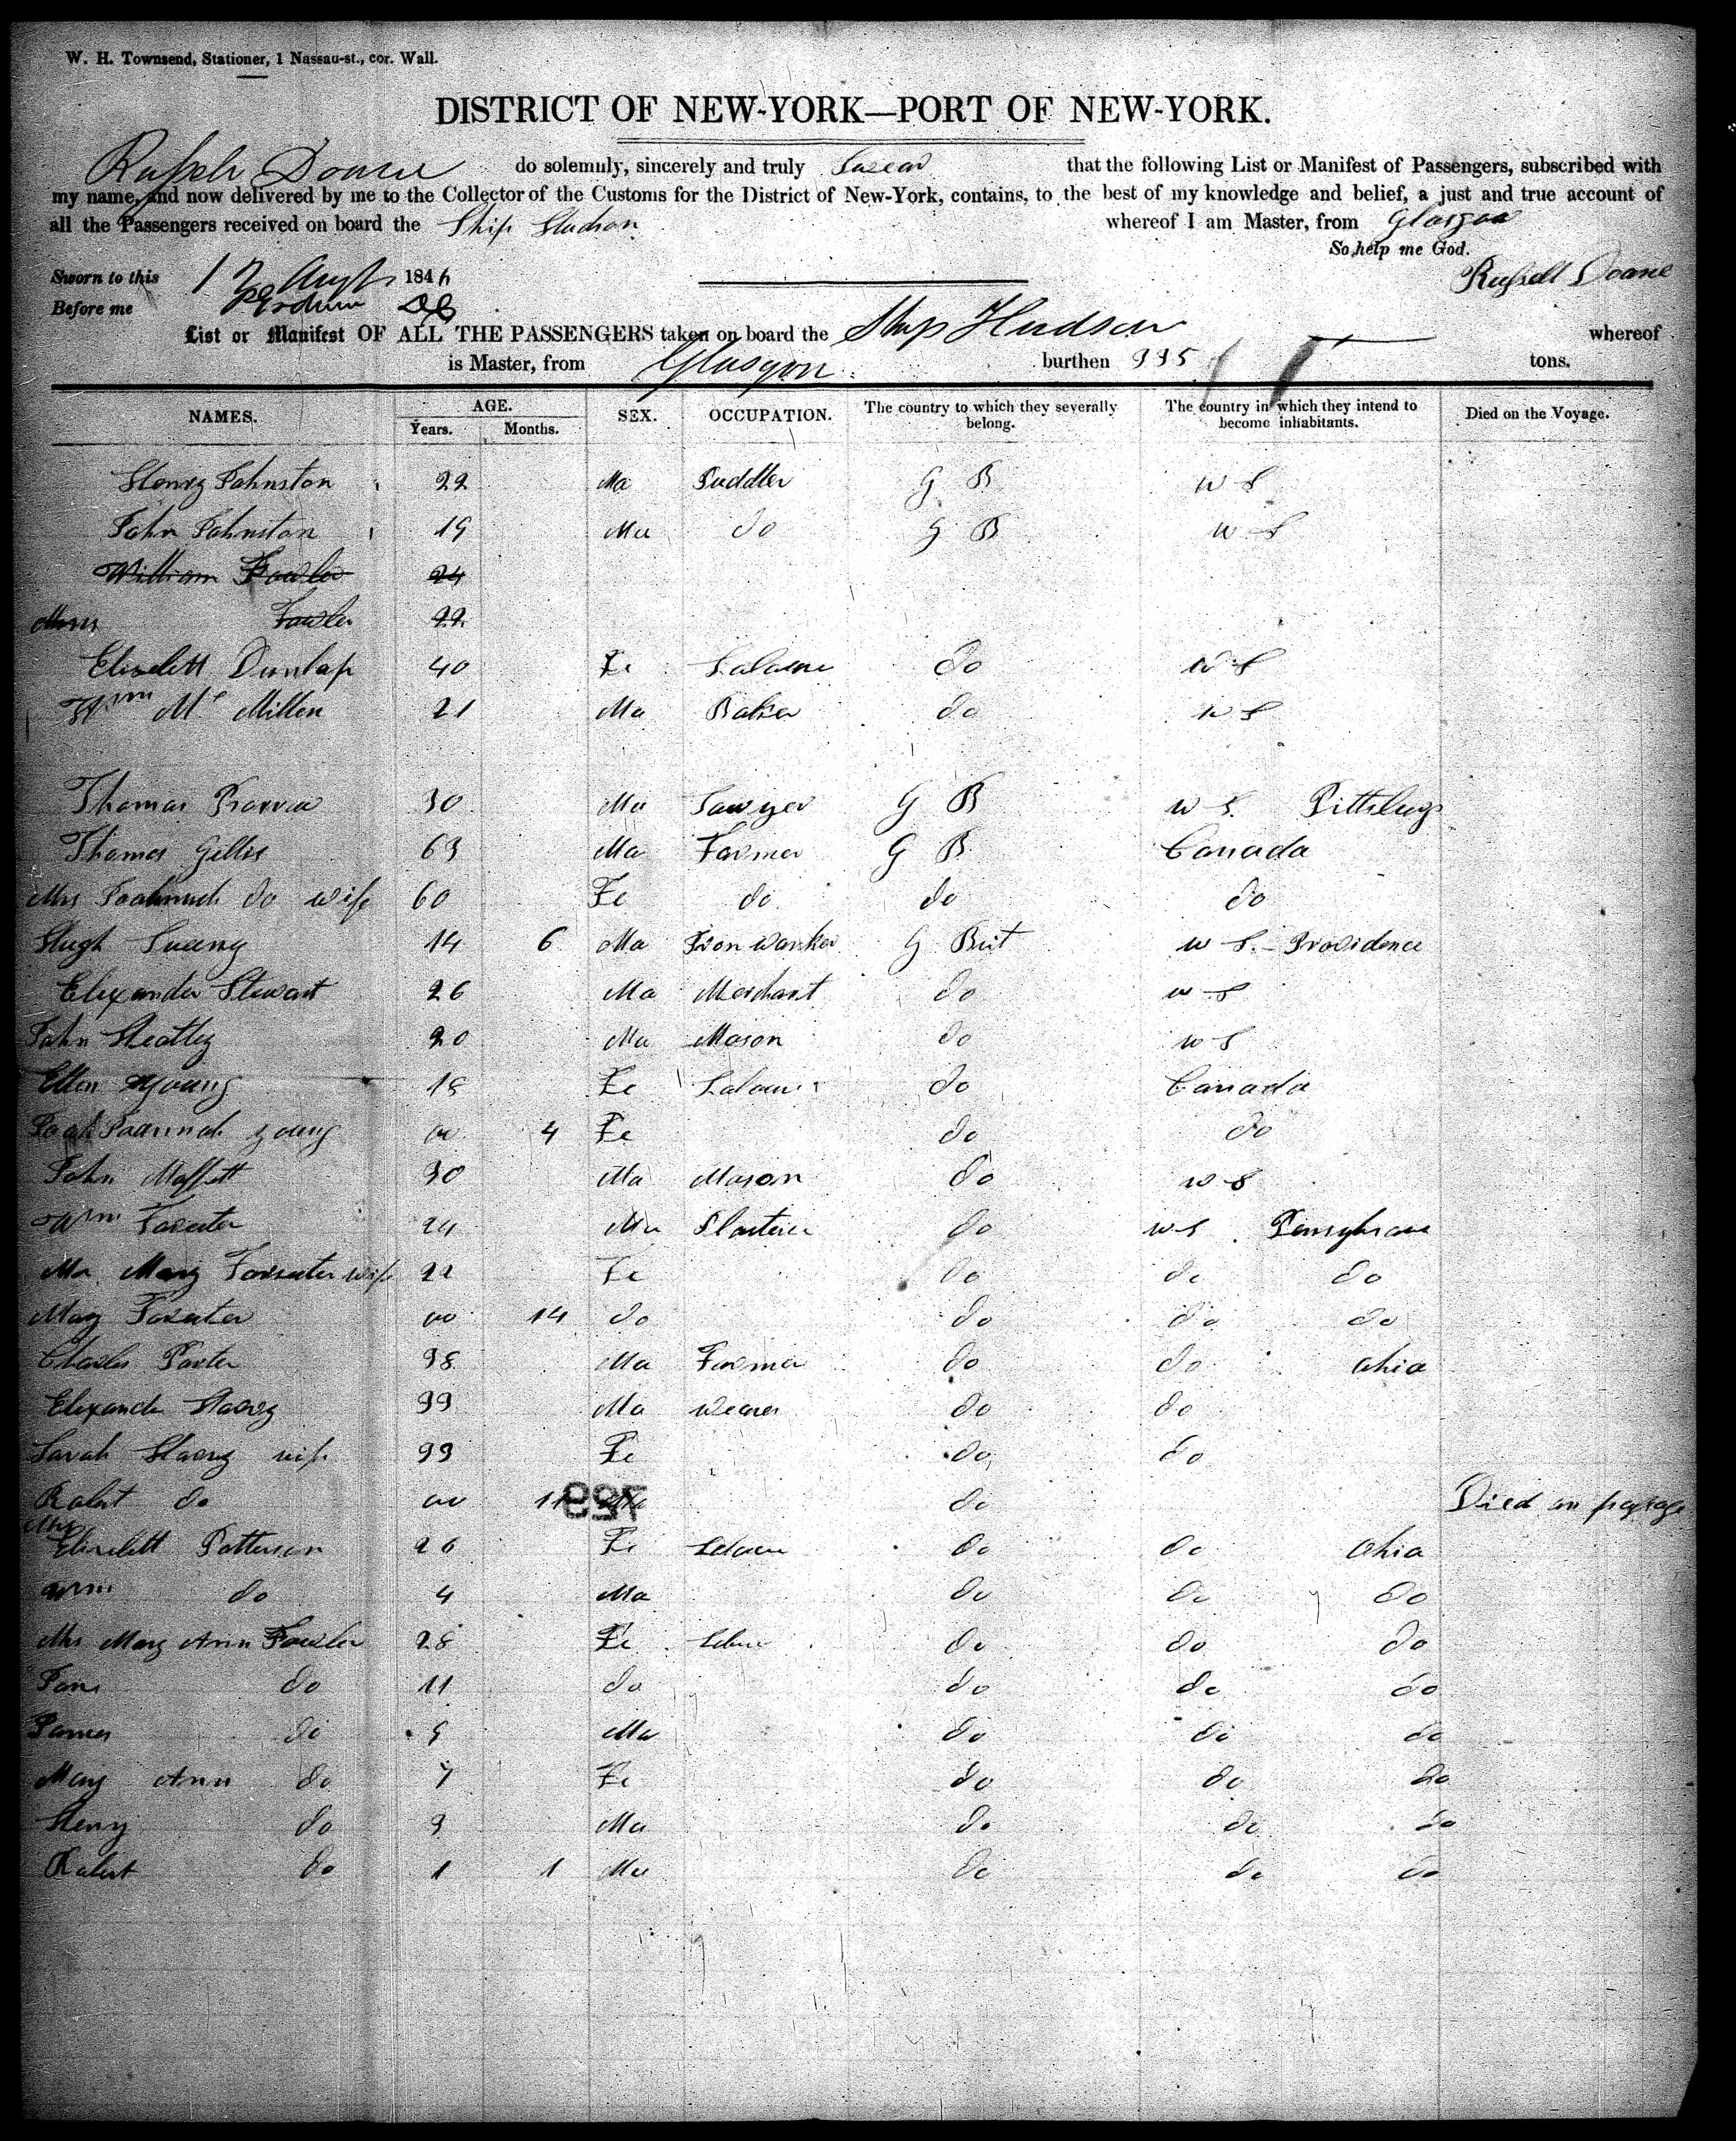 W. H. Townsend, Stationer, 1 Nassau-st., cor. Wall.
DISTRICT OF NEW-YORK—PORT OF NEW-YORK.
Russell Doane do solemnly, sincerely and truly Swear that the following List or Manifest of Passengers, subscribed with
my name, and now delivered by me to the Collector of the Customs for the District of New-York, contains, to the best of my knowledge and belief, a just and true account of
all the Passengers received on board the Ship Hudson whereof I am Master, from Glasgow
So help me God.
Sworn to this Augt 1846 Russell Doane
Before me
List or Manifest OF ALL THE PASSENGERS taken on board the Ship Hudson whereof
is Master, from Glasgow burthen tons.
NAMES. AGE. SEX. OCCUPATION. The country to which they severally belong. The country in which they intend to become inhabitants. Died on the Voyage.
Years. Months.
Henry Johnston 22 Ma Puddler G B W S
John Johnston 19 Ma do G B W S
William Fowler 24
Mrs Fowler 22
Elizebett Dunlap 40 Fe do W S
Wm Mc Millen 21 Ma Baker do W S
Thomas 30 Ma Sawyer G B W S. Pittsburg
Thomas Gillis 63 Ma Farmer G B Canada
Mrs do wife 60 Fe do do do
Hugh Sweeny 14 6 Ma Iron Worker G Brit W S. - Providence
Elexander Stewart 26 Ma Merchant do W S
John Heatley 20 Ma Mason do W S
Ellen Young 18 Fe Labour do Canada
Young 00 4 Fe do do
John Moffett 30 Ma Mason do W S
Wm Forester 24 Ma Plasterer do W S.
Mary Forsester wife 22 Fe do do do
May Forester 00 14 do do do do
Charles Porter 38 Ma Farmer do do Ohio
Elexander 33 Ma Weaver do do
Sarah wife 33 Fe do do
Robert do 00 11 Ma do Died on passage
729
Mrs
Elizebett Patterson 26 Fe Labour do do Ohio
Wm do 4 Ma do do do
Mrs Mary Ann Fowler 28 Fe do do do
Jane do 11 do do do do
James do 9 Ma do do do
Mary Ann do 7 Fe do do do
Henry do 3 Ma do do do
Robert do 1 1 Ma do do do